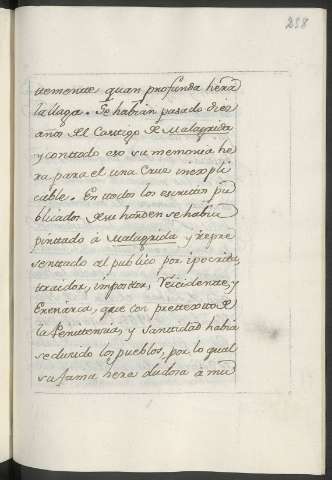 238
temente quan profunda hera
la llaga. Se habian pasado dies
años del Castigo de Malagrida
y contodo eso su memoria he
ra para el una Cruz inexpli
cable. En todos los escritos pu
blicados de su horden se habia
pintado á Malagrida y repre
sentado al publico por ipocrita,
traidor, impostor, y
que con prettexto de
la Penitensia, y Santidad habia
seducido los pueblos, por lo qual
su fama hera dudosa á mu